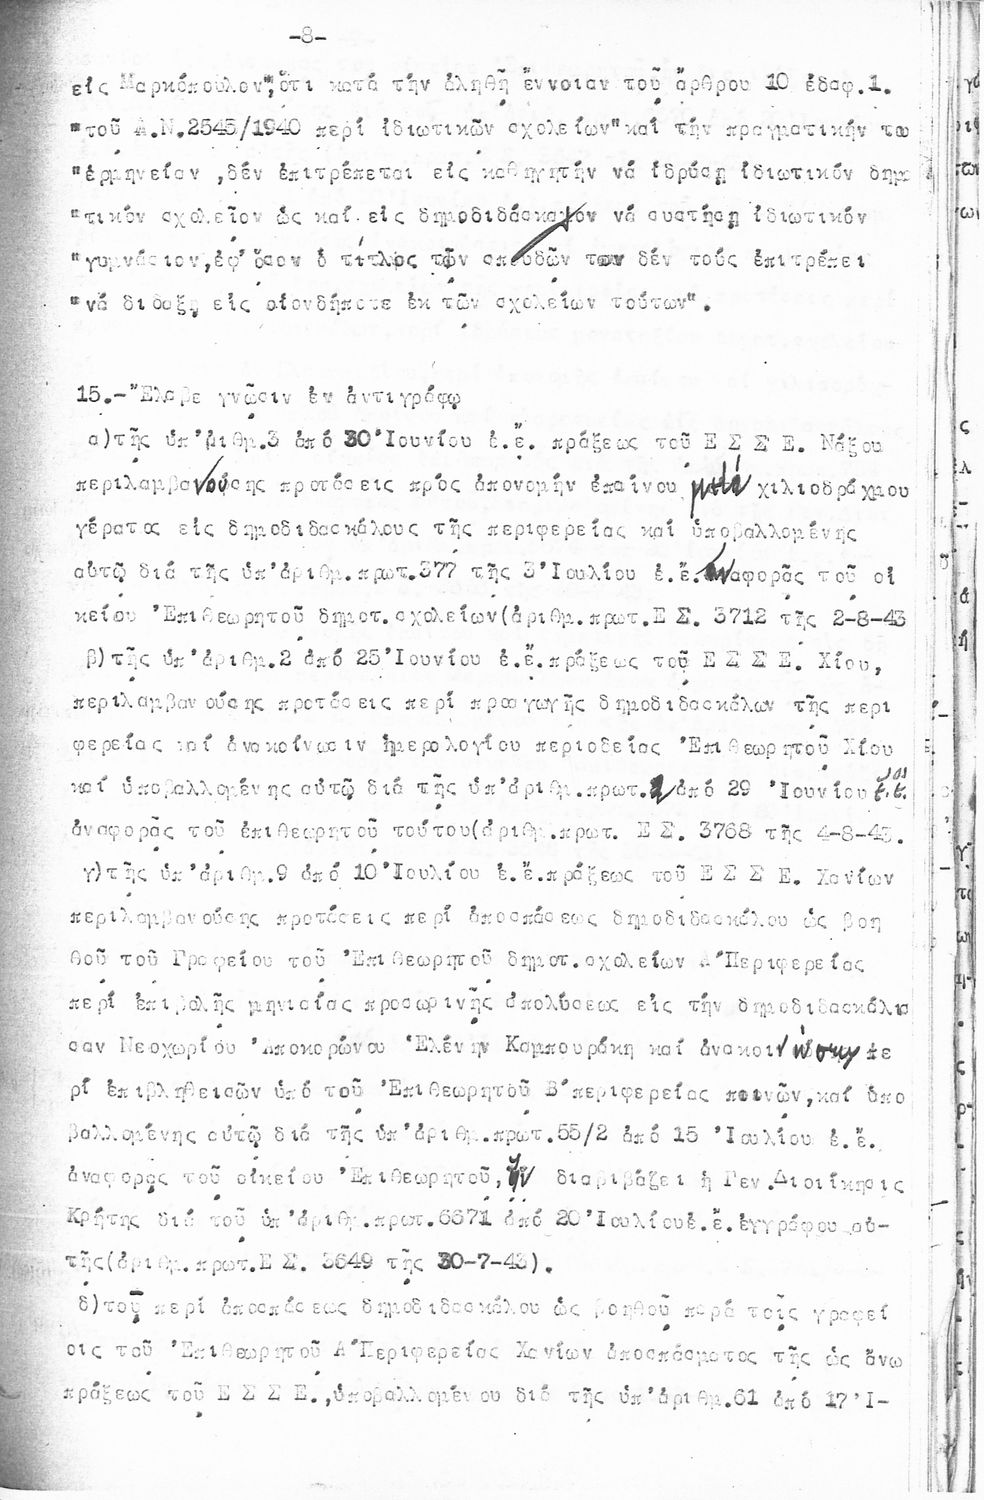 -8-
εἰς Μαρκόπουλον", ὅτι κατά τήν ἀληθῆ ἔννοιαν τοῦ ἄρθρου 10 ἐδαφ.1.
"τοῦ Α.Ν.2545/1940 περί ἰδιωτικῶν σχολείων" καί τήν πραγματικήν του
"ἑρμηνείαν ,δέν ἐπιτρέπεται εἰς καθηγητήν νά ἱδρύσῃ ἰδιωτικόν δημο
"τικόν σχολεῖον ὡς καί εἰς δημοδιδάσκαλον νά συστήσῃ ἰδιωτικόν
"γυμνάσιον,ἐφ' ὅσον ὁ τίτλος τῶν σπουδῶν των δέν τούς ἐπιτρέπει
"νά διδάξῃ εἰς οἱονδήποτε ἐκ τῶν σχολείων τούτων".
15.-Ἔλαβε γνῶσιν ἐν ἀντιγράφῳ
α)τῆς ὑπ'ἀριθμ.3 ἀπό 30 Ἰουνίου ἐ.ἔ. πράξεως τοῦ Ε Σ Σ Ε. Νάξου
περιλαμβανούσης προτάσεις πρός ἀπονομήν ἐπαίνου μετά χιλιοδράχμου
γέρατος εἰς δημοδιδασκάλους τῆς περιφερείας καί ὑποβαλλομένης
αὐτῷ διά τῆς ὑπ'ἀριθμ.πρωτ.377 τῆς 3 Ἰουλίου ἐ.ἔ. ἀναφορᾶς τοῦ οἰ
κείου Ἐπιθεωρητοῦ δημοτ.σχολείων(ἀριθμ.πρωτ.Ε Σ. 3712 τῆς 2-8-43
β)τῆς ὑπ'ἀριθμ.2 ἀπό 25 Ἰουνίου ἐ.ἔ.πράξεως τοῦ Ε Σ Σ Ε. Χίου,
περιλαμβανούσης προτάσεις περί προαγωγῆς δημοδιδασκάλων τῆς περι
φερείας καί ἀνακοίνωσιν ἡμερολογίου περιοδείας Ἐπιθεωρητοῦ Χίου
καί ὑποβαλλομένης αὐτῷ διά τῆς ὑπ'ἀριθμ.πρωτ. ἀπό 29 Ἰουνίου ἐ.ἔ.
ἀναφορᾶς τοῦ ἐπιθεωρητοῦ τούτου(ἀριθμ.πρωτ. Ε Σ. 3768 τῆς 4-8-43.
γ)τῆς ὑπ'ἀριθμ.9 ἀπό 10 Ἰουλίου ἐ.ἔ.πράξεως τοῦ Ε Σ Σ Ε. Χανίων
περιλαμβανούσης προτάσεις περί ἀποσπάσεως δημοδιδασκάλου ὡς βοη
θοῦ τοῦ Γραφείου τοῦ Ἐπιθεωρητοῦ δημοτ.σχολείων Α'Περιφερείας
περί ἐπιβολῆς μηνιαίας προσωρινῆς ἀπολύσεως εἰς τήν δημοδιδασκάλισ
σαν Νεοχωρίου Ἀποκορώνου Ἑλένην Καμπουράκη καί ἀνακοινώσεις πε
ρί ἐπιβληθεισῶν ὑπό τοῦ Ἐπιθεωρητοῦ Β'περιφερείας ποινῶν,καί ὑπο
βαλλομένης αὐτῷ διά τῆς ὑπ'ἀριθμ.πρωτ.55/2 ἀπό 15 Ἰουλίου ἐ.ἔ.
ἀναφορᾶς τοῦ οἰκείου Ἐπιθεωρητοῦ,ἥν διαβιβάζει ἡ Γεν.Διοίκησις
Κρήτης διά τοῦ ὑπ'ἀριθμ.πρωτ.6671 ἀπό 20 Ἰουλίου ἐ.ἔ.ἐγγράφου αὐ-
τῆς(ἀριθμ.πρωτ.Ε Σ. 3649 τῆς 30-7-43).
δ)τοῦ περί ἀποσπάσεως δημοδιδασκάλου ὡς βοηθοῦ παρά τοῖς γραφεί
οις τοῦ Ἐπιθεωρητοῦ Α'Περιφερείας Χανίων ἀποσπάσματος τῆς ὡς ἄνω
πράξεως τοῦ Ε Σ Σ Ε.,ὑποβαλλομένου διά τῆς ὑπ'ἀριθμ.61 ἀπό 17 Ἰ-